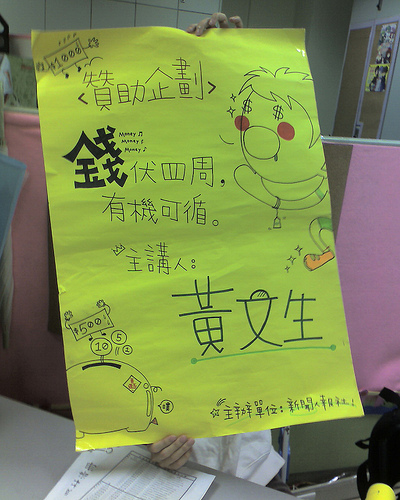 $1000
<贊助企劃>
Money♫
Money♪
Money♪
錢伏四周，
有機可循。
主講人：
黃文生
$500
5
10
主辦單位：新聞人報社！